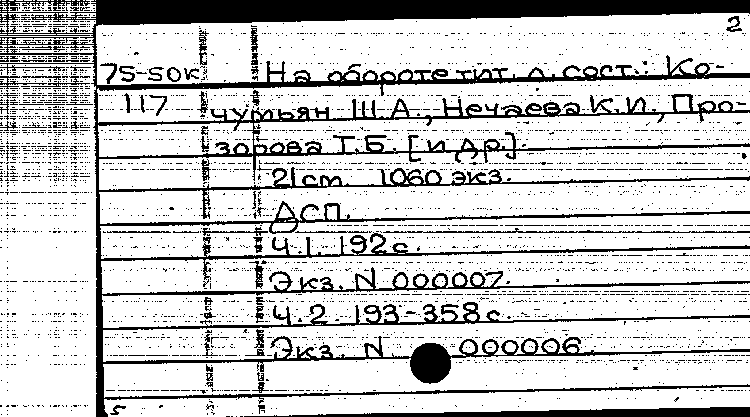 2
75-50к На обороте тит. л. сост.: Ко-
117 чумьян Ш.А., Нечаева К.И., Про-
зорова Т.Б. [и др].
21 cm. 1060 экз.
ДСП.
Ч.1. 192 с.
Экз. N 000007.
Ч.2. 193-358 с.
Экз. N 000006.
5